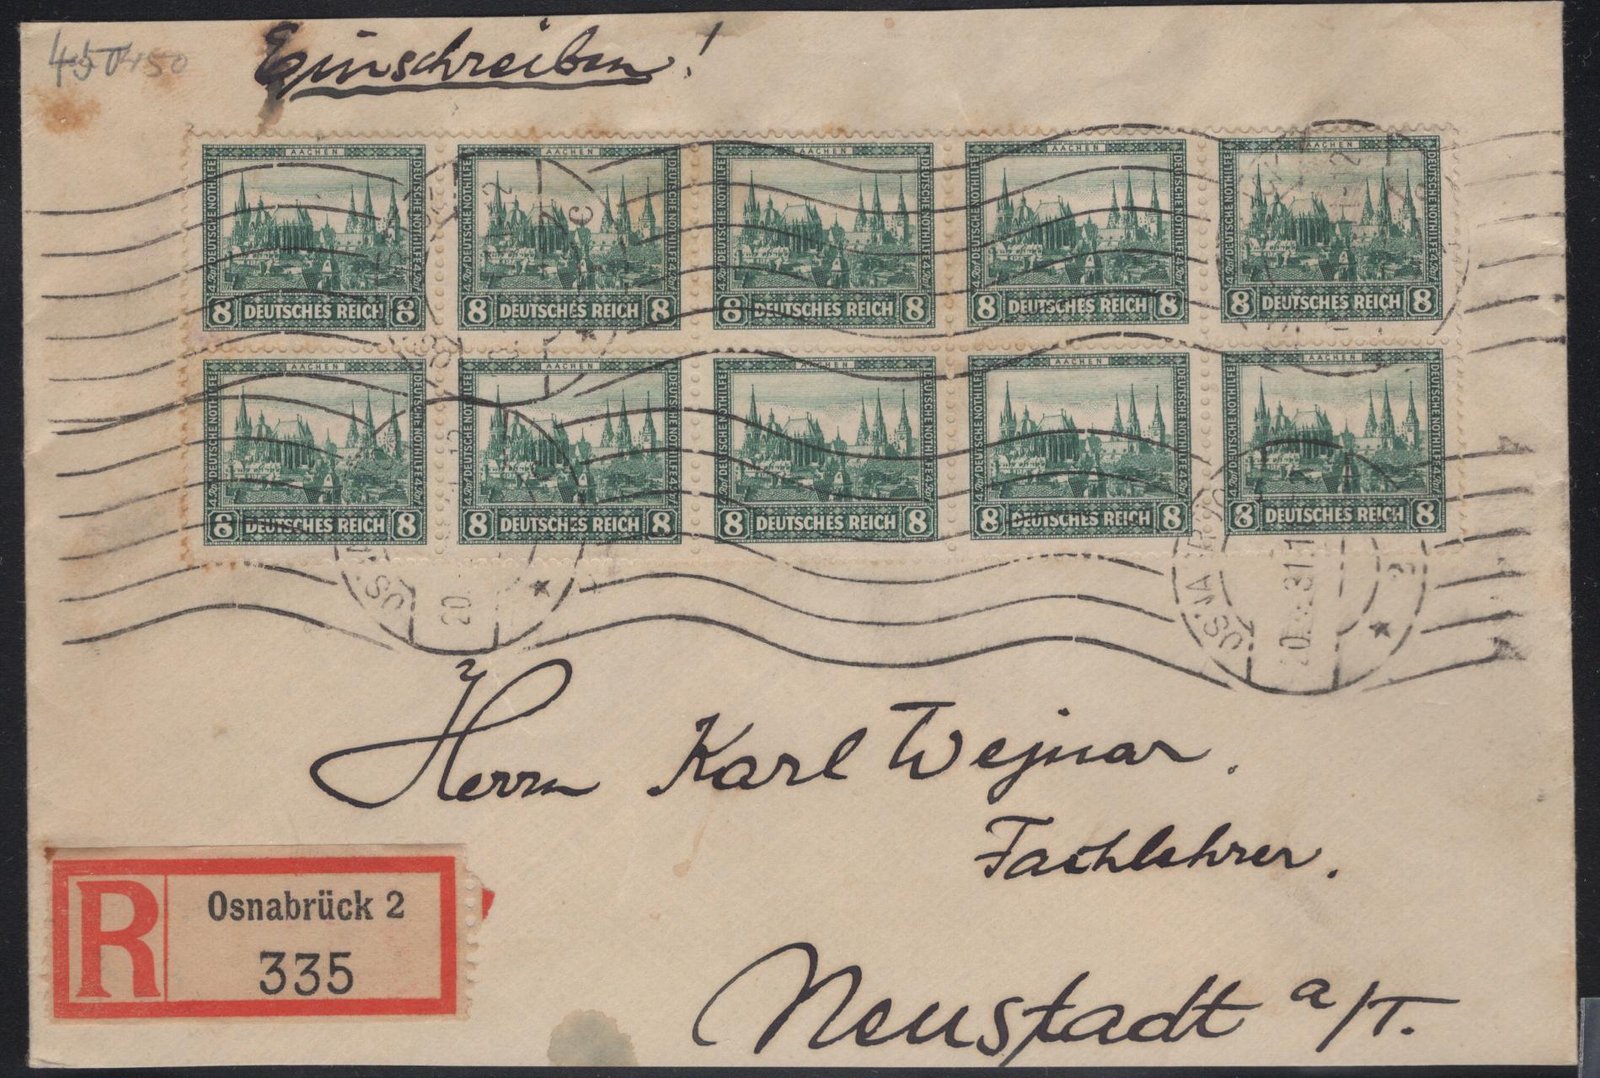 450 450
Einschreiben!
AACHEN AACHEN AACHEN AACHEN AACHEN
DEUTSCHE NOTHILFE DEUTSCHE NOTHILFE DEUTSCHE NOTHILFE DEUTSCHE NOTHILFE DEUTSCHE NOTHILFE
8 DEUTSCHES REICH 8 8 DEUTSCHES REICH 8 8 DEUTSCHES REICH 8 8 DEUTSCHES REICH 8 8 DEUTSCHES REICH 8
AACHEN AACHEN AACHEN AACHEN AACHEN
DEUTSCHE NOTHILFE DEUTSCHE NOTHILFE DEUTSCHE NOTHILFE DEUTSCHE NOTHILFE DEUTSCHE NOTHILFE
8 DEUTSCHES REICH 8 8 DEUTSCHES REICH 8 8 DEUTSCHES REICH 8 8 DEUTSCHES REICH 8 8 DEUTSCHES REICH 8
Herrn Karl Wejnar.
Fachlehrer.
R Osnabrück 2
335
Neustadt a/T.